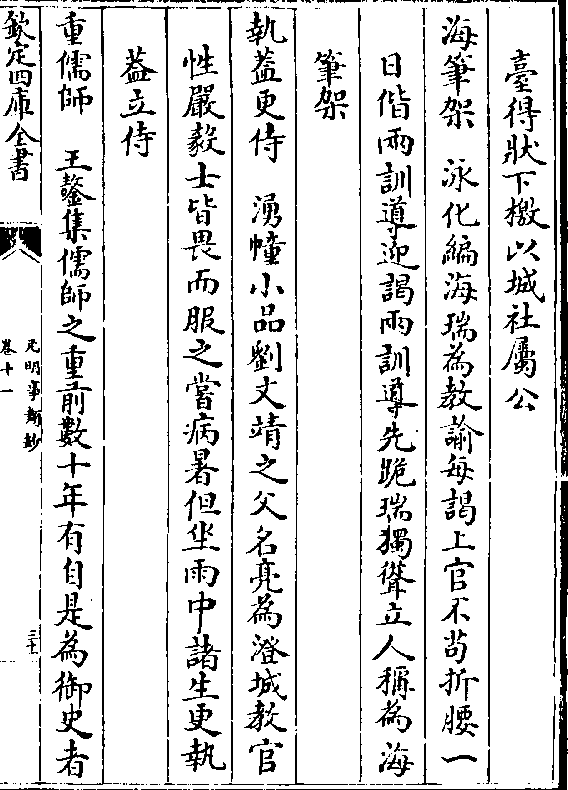 臺得狀下檄以城社屬公
海筆架　泳化編海瑞為教諭每謁上官不苟折腰一
日偕兩訓導迎謁兩訓導先跪瑞獨聳立人稱為海
筆架
執蓋更侍　湧幢小品劉文靖之父名亮為澄城教官
性嚴毅士皆畏而服之嘗病暑但坐雨中諸生更執
葢立侍
重儒師　王鏊集儒師之重前數十年有自是為御史者
欽定四庫全書
元明事類鈔
卷十一
三十